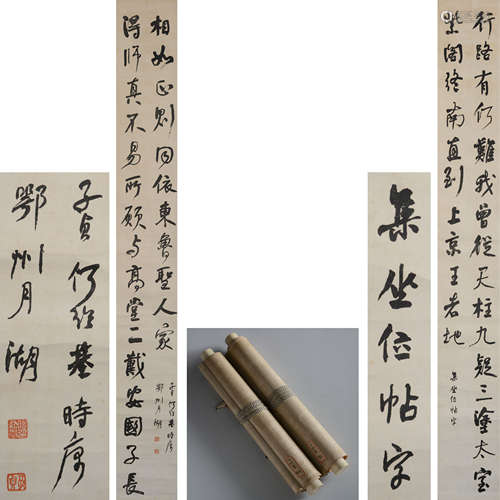 行路有何難我曾從天柱九疑三塗太室
紫閣終南直到上京王者地
集坐位帖字
集坐位帖字
得師真不易所願与高堂二戴安國子長
相如正則同依東魯聖人家
子貞何紹基時寓
鄂州月湖
子貞何紹基時寓
鄂州月湖